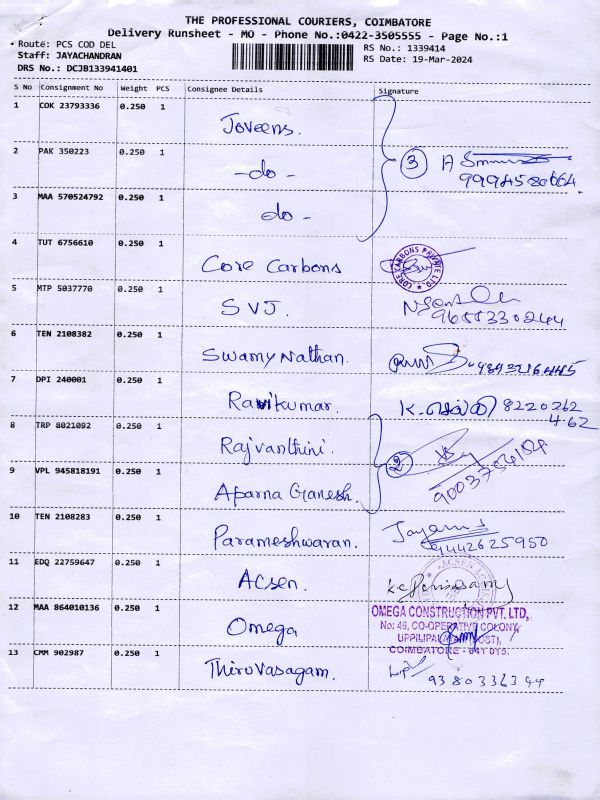 THE PROFESSIONAL COURIERS, COIMBATORE
Delivery Runsheet - MO - Phone No.:0422-3505555 - Page No.:1
Route: PCS COD DEL
RS No.: 1339414
Staff: JAYACHANDRAN
RS Date: 19-Mar-2024
DRS No.: DCJB133941401
S No Consignment No Weight PCS Consignee Details Signature
1 COK 23793336 0.250 1 Joveens.
2 PAK 350223 0.250 1 -do- 3
9994580664.
3 MAA 570524792 0.250 1 do -
4 TUT 6756610 0.250 1 Core Carbons CORE CARBONS PRIVATE LTD.
5 MTP 5037770 0.250 1 SVJ.
6 TEN 2108382 0.250 1 Swamy Nathan.
7 DPI 240001 0.250 1 Ravikumar. 8220262
462
8 TRP 8021092 0.250 1 Rajvanthini. 2
9 VPL 945818191 0.250 1 Aparna Ganesh.
10 TEN 2108283 0.250 1 Parameshwaran.
9442625950
11 EDQ 22759647 0.250 1 Acsen.
12 MAA 864010136 0.250 1 Omega
OMEGA CONSTRUCTION PVT. LTD,
No: 48, CO-OPERATIVE COLONY,
UPPILIPALAYAM (POST),
COIMBATORE - 641 015.
13 CMM 902987 0.250 1 Thiruvasagam.